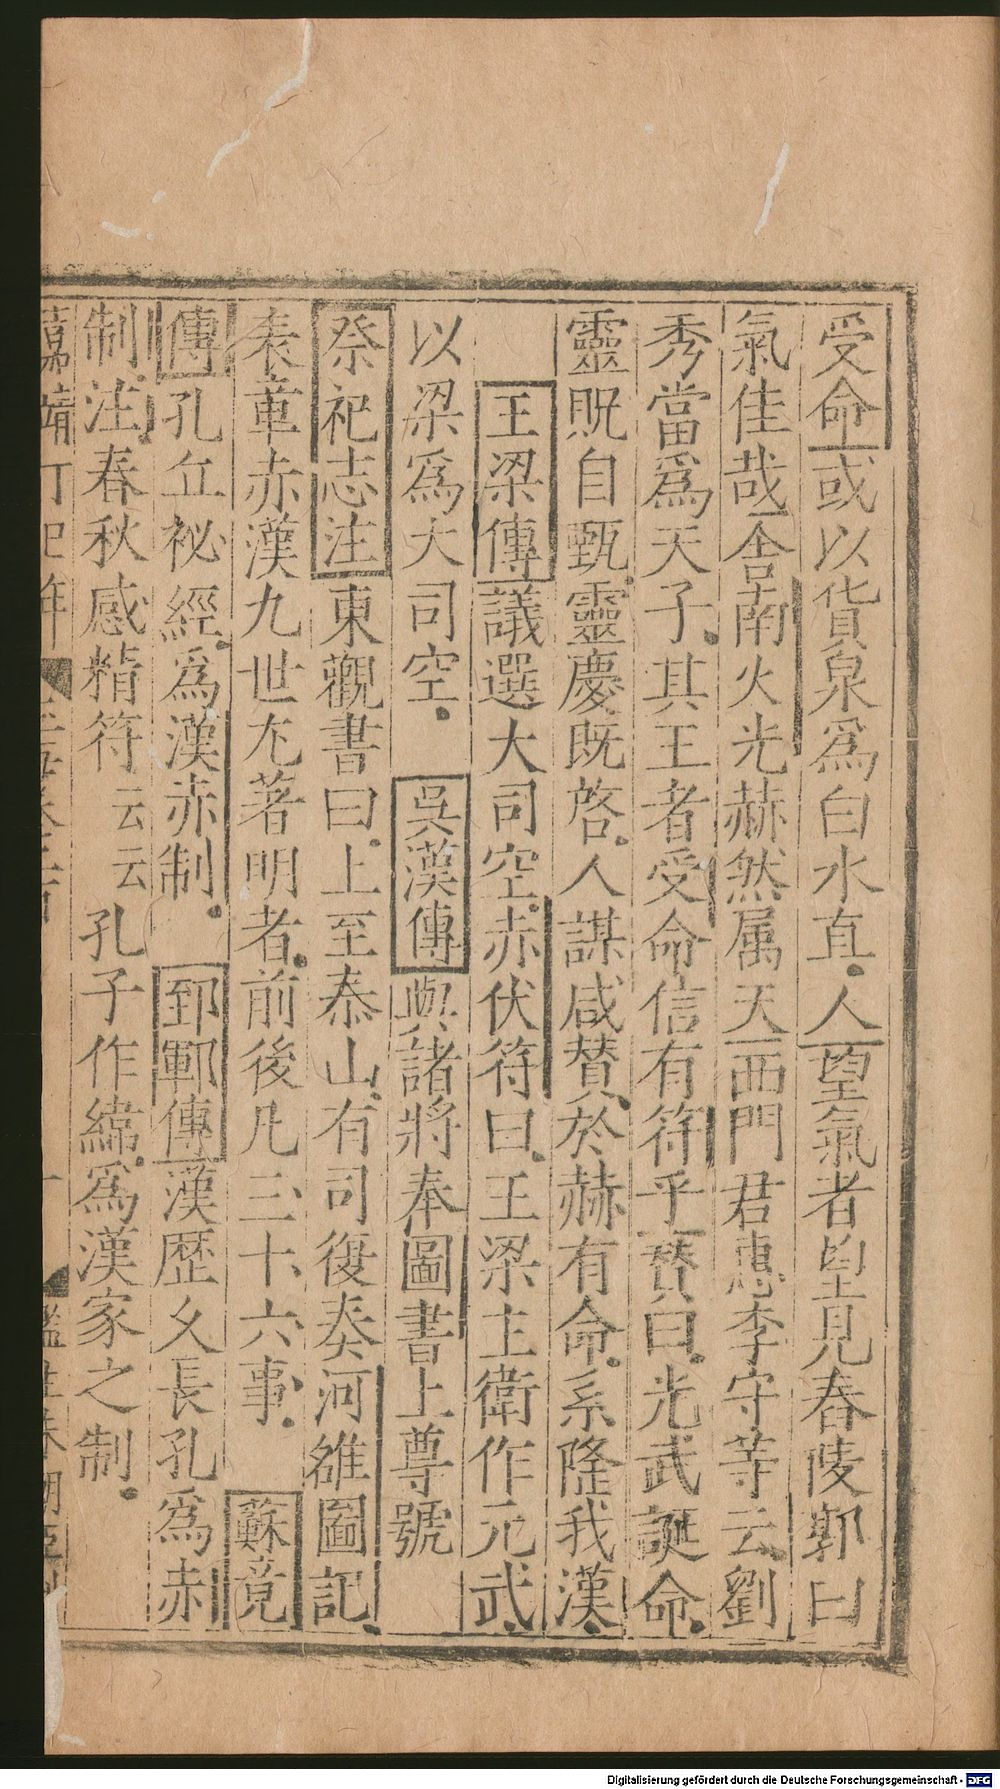 受命或以貨泉爲白水眞人望氣者望見舂陵郭曰
氣佳哉舎南火光赫然属天西門君惠李守等云劉
秀當爲天子其王者受命信有符乎賛曰光武誕命
靈貺自甄靈慶既啓人謀咸賛於赫有命系隆我漢
王梁傳議選大司空赤伏符曰王梁主衛作元武
以梁爲大司空吳漢傳與諸將奉圖書上尊號
祭祀志注東觀書曰上至泰山有司復奏河雒圖記
表章赤漢九世尤著明者前後凡三十六事蘇竟
傳孔丘祕經爲漢赤制郅鄆傳漢歷久長孔爲赤
制注春秋感精符云云孔子作緯爲漢家之制
嘉靖丁巳年
Digitalisierung gefördert durch die Deutsche Forschungsgemeinschaft - DFG